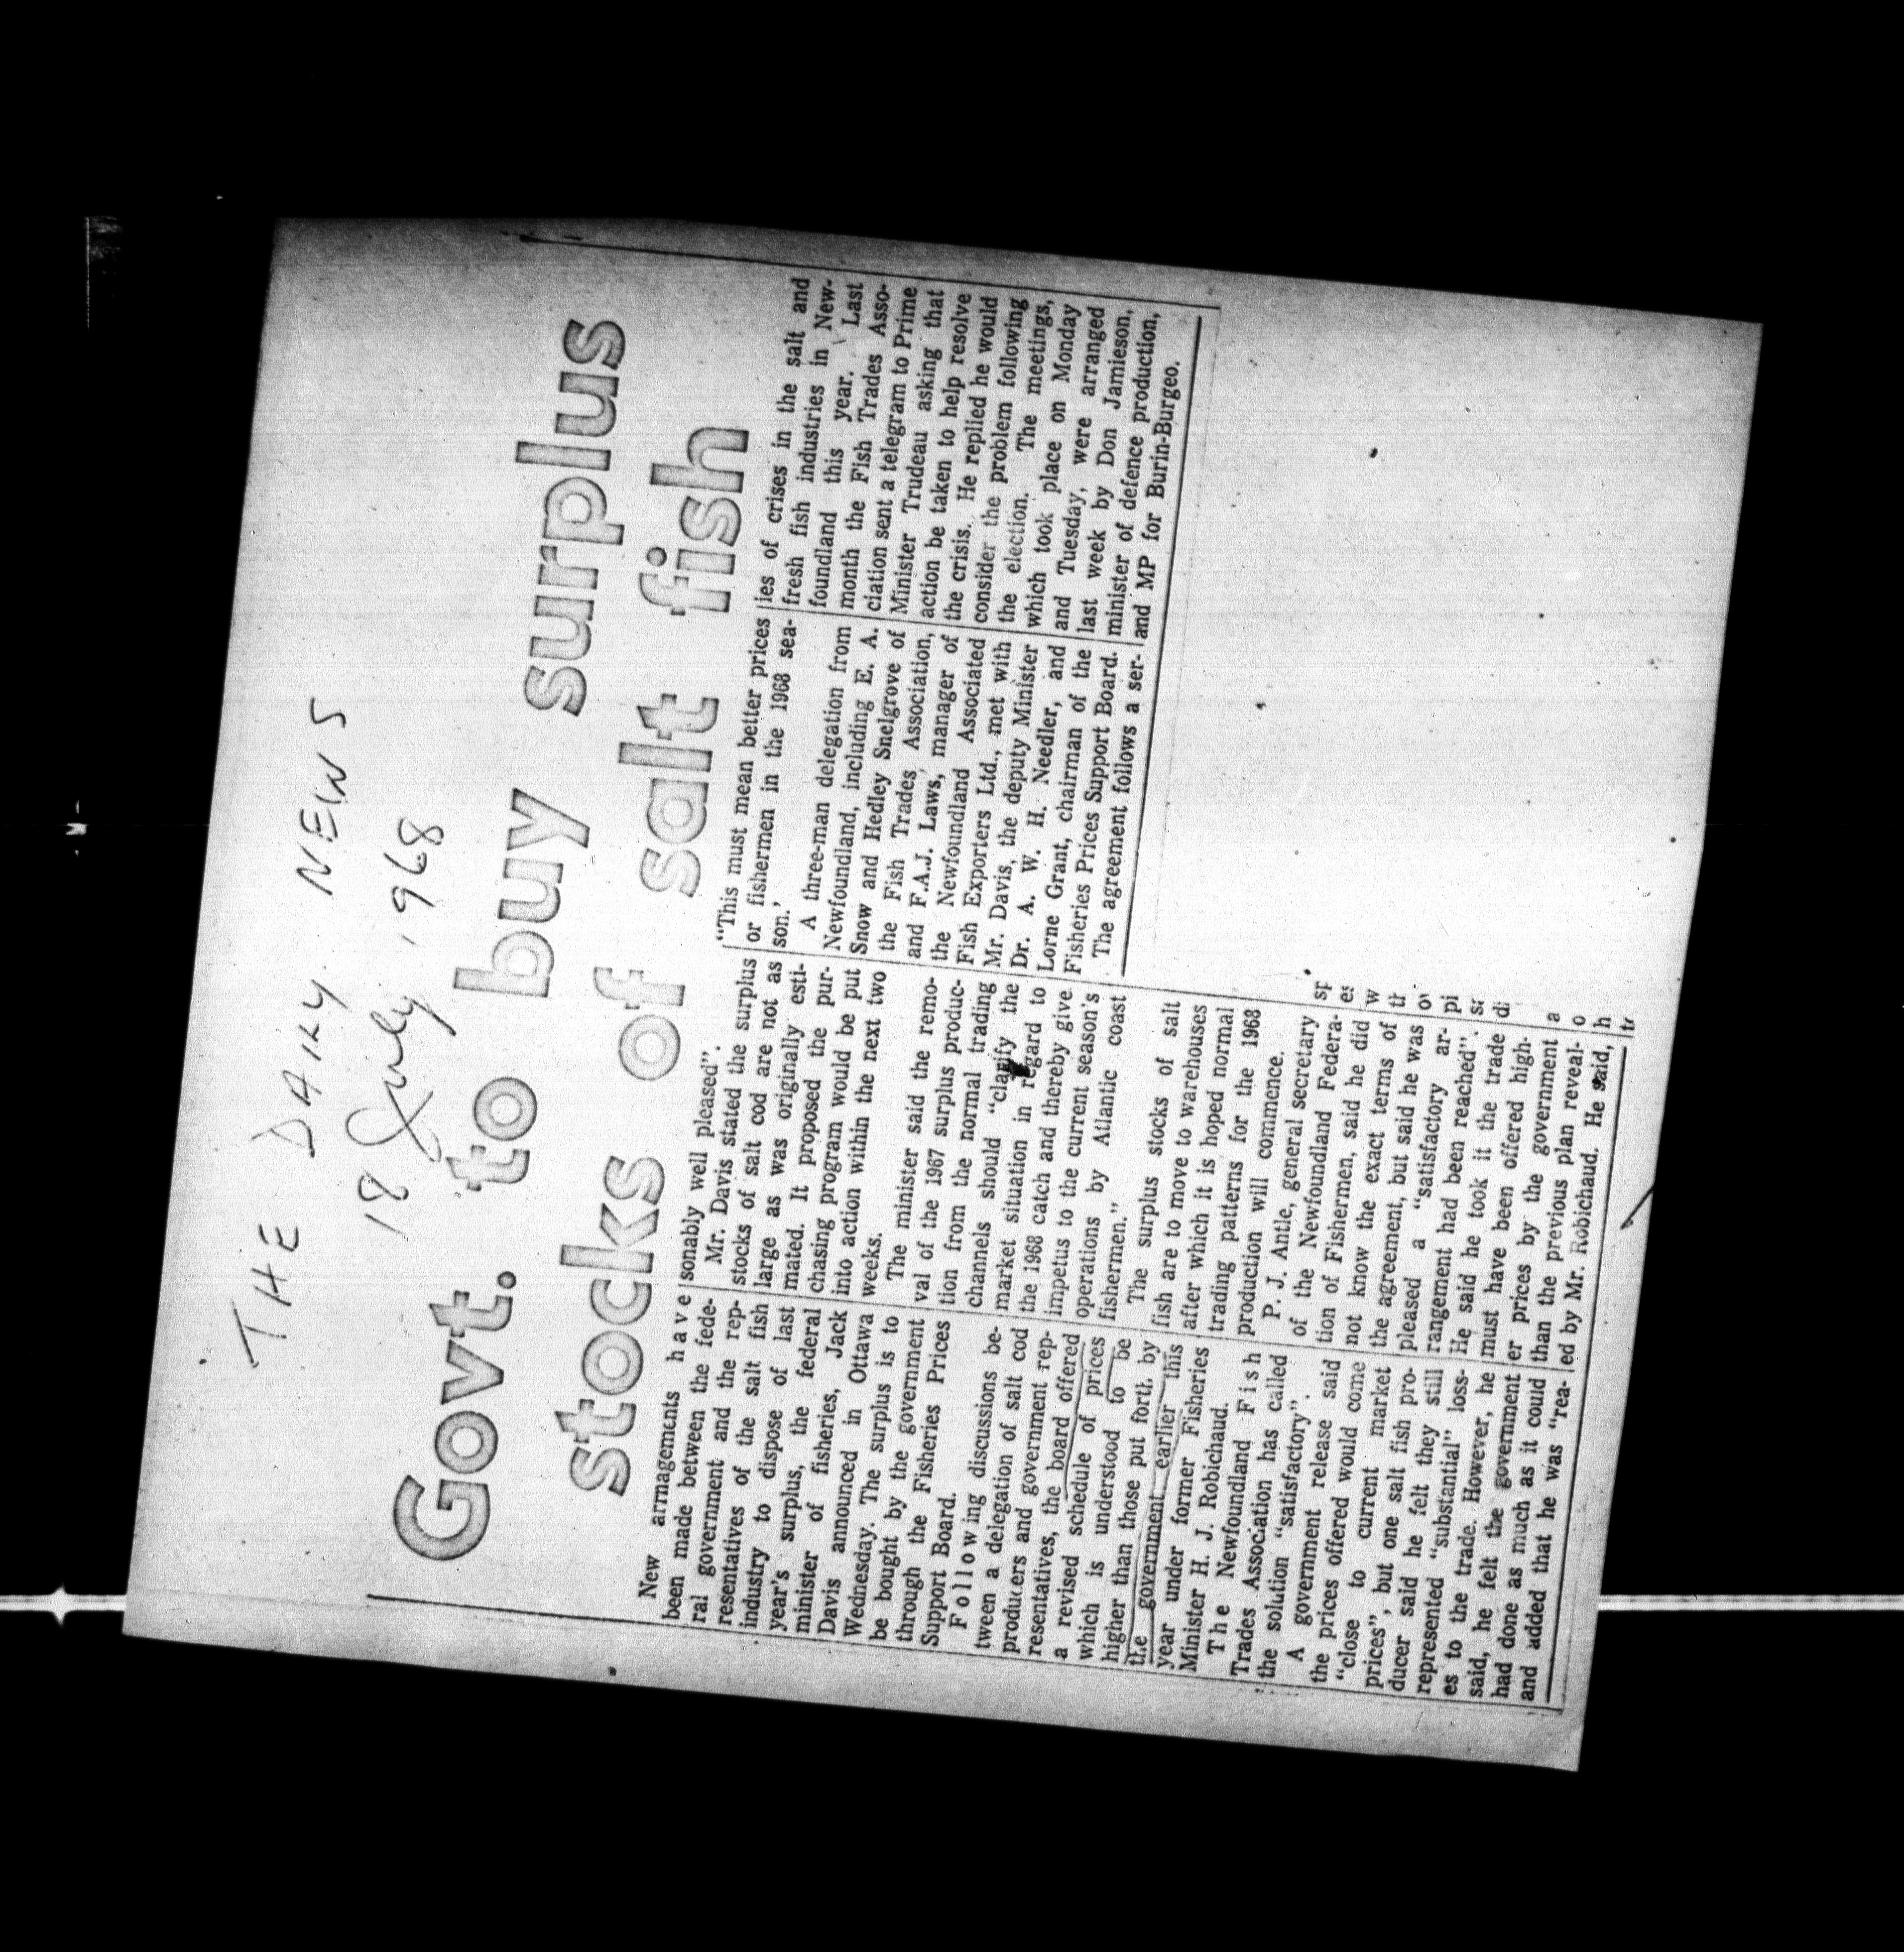 THE DAILY NEWS
18 July, 1968
Govt. to buy surplus
stocks of salt fish
New arrnagements have
been made between the fede-
ral government and the rep-
resentatives of the salt fish
industry to dispose of last
year's surplus, the federal
minister of fisheries, Jack
Davis announced in Ottawa
Wednesday. The surplus is to
be bought by the government
through the Fisheries Prices
Support Board.
Following discussions be-
tween a delegation of salt cod
producers and government rep-
resentatives, the board offered
a revised schedule of prices
which is understood to be
higher than those put forth by
the government earlier this
year under former Fisheries
Minister H. J. Robichaud.
The Newfoundland Fish
Trades Association has called
the solution "satisfactory".
A government release said
the prices offered would come
"close to current market
prices", but one salt fish pro-
ducer said he felt they still
represented "substantial" loss-
es to the trade. However, he
said, he felt the government
had done as much as it could
and added that he was "rea-
sonably well pleased".
Mr. Davis stated the surplus
stocks of salt cod are not as
large as was originally esti-
mated. It proposed the pur-
chasing program would be put
into action within the next two
weeks.
The minister said the remo-
val of the 1967 surplus produc-
tion from the normal trading
channels should "clarify the
market situation in regard to
the 1968 catch and thereby give
impetus to the current season's
operations by Atlantic coast
fishermen."
The surplus stocks of salt
fish are to move to warehouses
after which it is hoped normal
trading patterns for the 1968
production will commence.
P. J. Antle, general secretary
of the Newfoundland Federa-
tion of Fishermen, said he did
not know the exact terms of
the agreement, but said he was
pleased a "satisfactory ar-
rangement had been reached".
He said he took it the trade
must have been offered high-
er prices by the government
than the previous plan reveal-
ed by Mr. Robichaud. He said,
"This must mean better prices
or fishermen in the 1968 sea-
son.'
A three-man delegation from
Newfoundland, including E. A.
Snow and Hedley Snelgrove of
the Fish Trades Association,
and F.A.J. Laws, manager of
the Newfoundland Associated
Fish Exporters Ltd., met with
Mr. Davis, the deputy Minister
Dr. A. W. H. Needler, and
Lorne Grant, chairman of the
Fisheries Prices Support Board.
The agreement follows a ser-
ies of crises in the salt and
fresh fish industries in New-
foundland this year. Last
month the Fish Trades Asso-
ciation sent a telegram to Prime
Minister Trudeau asking that
action be taken to help resolve
the crisis. He replied he would
consider the problem following
the election. The meetings,
which took place on Monday
and Tuesday, were arranged
last week by Don Jamieson,
minister of defence production,
and MP for Burin-Burgeo.